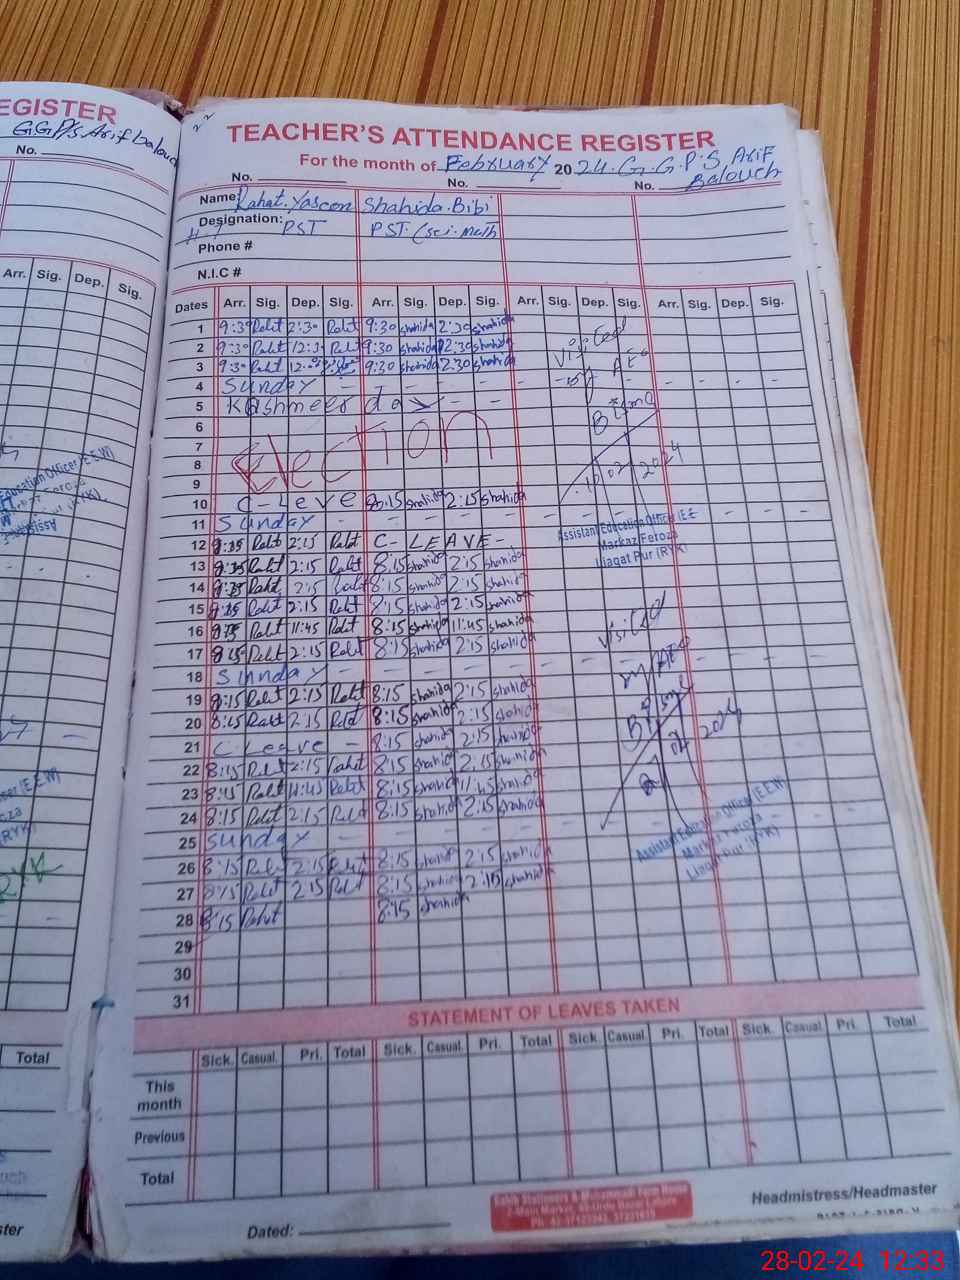 EGISTER
GGP/S Arif balouch
No.
Arr. Sig. Dep. Sig.
Total
TEACHER'S ATTENDANCE REGISTER
For the month of February 2024. G.G.P.S Arif
Balouch
No. No. No.
Name: Rahat Yaseen Shahida Bibi
Designation: PST PST (sci-math
Phone #
N.I.C #
Dates Arr. Sig. Dep. Sig. Arr. Sig. Dep. Sig. Arr. Sig. Dep. Sig. Arr. Sig. Dep. Sig.
1 9:30 Raht 2:30 Raht 9:30 shahida 2:30 shahida
2 9:30 Raht 12:30 Raht 9:30 shahida 12:30 shahida
3 9:30 Raht 9:30 shahida 2:30 shahida
4 Sunday
5 Kashmeer day
6
7
8 Election
9
10 C-Leve 8:15 shahida 2:15 shahida
11 Sunday
12 8:15 Raht 2:15 Raht C-LEAVE-
13 8:15 Raht 2:15 Raht 8:15 shahida 2:15 shahida
14 8:15 Raht 2:15 Raht 8:15 shahida 2:15 shahida
15 8:15 Raht 2:15 Raht 8:15 shahida 2:15 shahida
16 8:15 Raht 11:45 Raht 8:15 shahida 11:45 shahida
17 8:15 Raht 2:15 Raht 8:15 shahida 2:15 shahida
18 Sunday
19 8:15 Raht 2:15 Raht 8:15 shahida 2:15 shahida
20 8:15 Raht 2:15 Raht 8:15 shahida 2:15 shahida
21 C Leave 8:15 shahida 2:15 shahida
22 8:15 Raht 2:15 Rahat 8:15 shahida 2:15 shahida
23 8:15 Raht 11:45 Raht 8:15 shahida 11:45 shahida
24 8:15 Raht 2:15 Raht 8:15 shahida 2:15 shahida
25 Sunday
26 8:15 Raht 2:15 Raht 8:15 shahida 2:15 shahida
27 8:15 Raht 2:15 Raht 8:15 shahida 2:15 shahida
28 8:15 Rahat 8:15 shahida
29
30
31
Visited
AEO
Bisma
10/02/2024
Assistant Education Officer (E.E
Markaz Feroza
Liaqat Pur (RYK)
Visited
AEO
Bisma
2024
Assistant Education Officer (E.E.W)
Markaz Feroza
Liaqat Pur (RYK)
STATEMENT OF LEAVES TAKEN
Sick. Casual. Pri. Total Sick. Casual. Pri. Total Sick. Casual Pri. Total Sick. Casual. Pri. Total
This
month
Previous
Total
Dated:
Headmistress/Headmaster
28-02-24 12:33